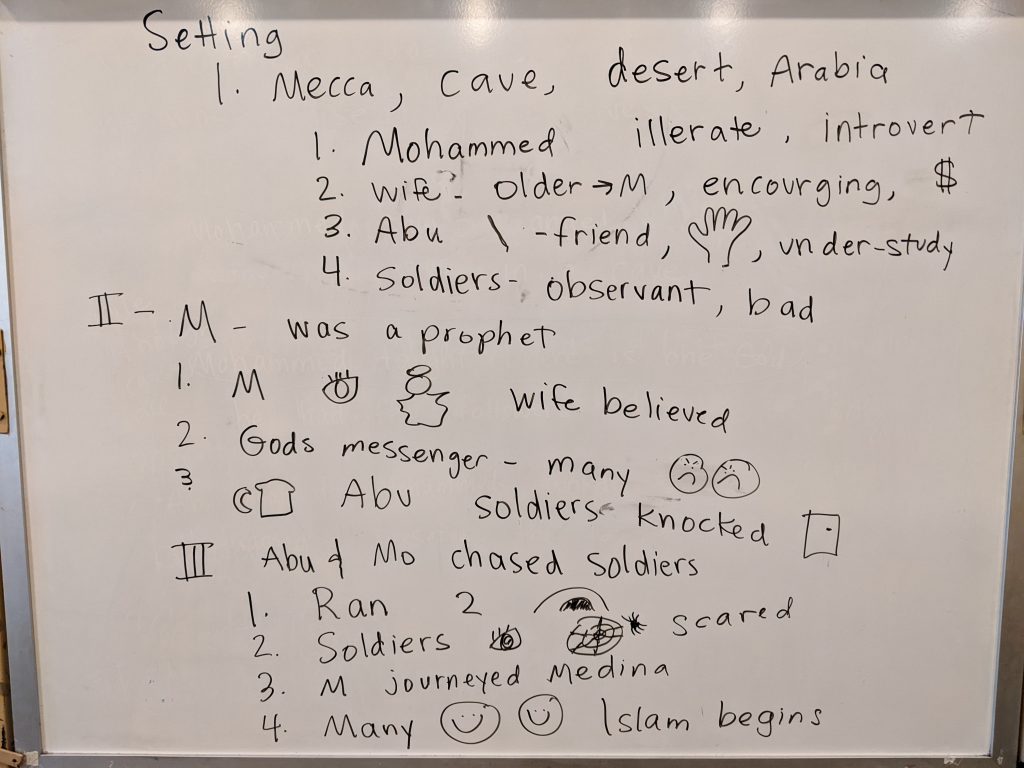 Setting
1. Mecca, cave, desert, Arabia
1. Mohammed illerate, introvert
2. wife - older → M, encourging, $
3. Abu \ - friend, , under-study
4. Soldiers - observant, bad
II - M - was a prophet
1. M wife believed
2. Gods messenger - many
3 Abu soldiers knocked
III Abu & Mo chased soldiers
1. Ran 2
2. Soldiers scared
3. M journeyed Medina
4. Many Islam begins